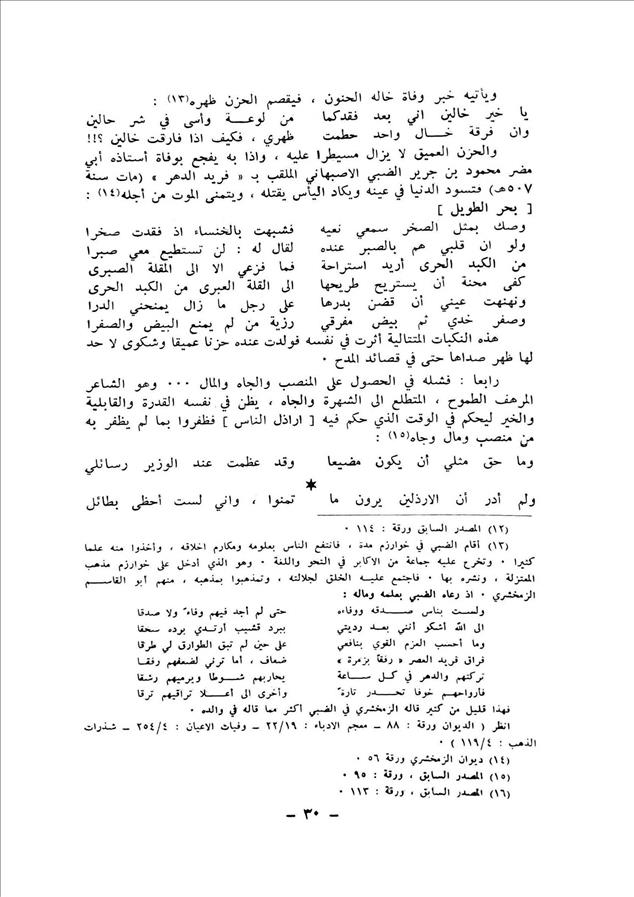 ويأتيه خبر وفاة خاله الحنون ، فيقصم الحزن ظهره(١٣) :
يا خير خالين اني بعد فقدكما من لوعـــة وأسى في شر حالين
وان فرقة خــال واحد حطمت ظهري ، فكيف اذا فارقت خالين ؟!!
والحزن العميق لا يزال مسيطرا عليه ، واذا به يفجع بوفاة أستاذه أبي
مضر محمود بن جرير الضبي الاصبهاني الملقب بـ « فريد الدهر » (مات سنة
٥٠٧هـ) فتسود الدنيا في عينه ويكاد اليأس يقتله ، ويتمنى الموت من أجله(١٤) :
[ بحر الطويل ]
وصك بمثل الصخر سمعي نعيه فشبهت بالخنساء اذ فقدت صخرا
ولو ان قلبي هم بالصبر عنده لقال له : لن تستطيع معي صبرا
من الكبد الحرى أريد استراحة فما فزعي الا الى المقلة الصبرى
كفى محنة أن يستريح طريحها الى القلة العبرى من الكبد الحرى
ونهنهت عيني أن فضن بدرها على رجل ما زال يمنحني الدرا
وصفر خدي ثم بيض مفرقي رزية من لم يمنع البيض والصفرا
هذه النكبات المتتالية أثرت في نفسه فولدت عنده حزنا عميقا وشكوى لا حد
لها ظهر صداها حتى في قصائد المدح ٠
رابعا : فشله في الحصول على المنصب والجاه والمال ٠٠٠ وهو الشاعر
المرهف الطموح ، المتطلع الى الشهرة والجاه ، يظن في نفسه القدرة والقابلية
والخير ليحكم في الوقت الذي حكم فيه [ اراذل الناس ] فظفروا بما لم يظفر به
من منصب ومال وجاه(١٥) :
وما حق مثلي أن يكون مضيعا وقد عظمت عند الوزير رسائلي
★
ولم أدر أن الارذلين يرون ما تمنوا ، واني لست أحظى بطائل
(١٢) المصدر السابق ورقة : ١١٤ ٠
(١٣) أقام الضبي في خوارزم مدة ، فانتفع الناس بعلومه ومكارم اخلاقه ، وأخذوا منه علما
كثيرا ٠ وتخرج عليه جماعة من الاكابر في النحو واللغة ٠ وهو الذي أدخل على خوارزم مذهب
المعتزلة ، ونشره بها ٠ فاجتمع عليــه الخلق لجلالته ، وتمذهبوا بمذهبه ، منهم أبو القاســم
الزمخشري ٠ اذ رعاه الضبي بعلمه وماله :
ولست بناس صــدقه ووفاءه حتى لم أجد فيهم وفاءً ولا صدقا
الى الله أشكو أنني بعــد رديتي ببرد قشيب أرتــدي برده سحقا
وما أحسب العزم القوي بنافعي على حين لم تبق الطوارق لي طرقا
فراق فريد العصر « رفقاً بزمرة » ضعاف ، أما ترني لضعفهم رفقـا
تركتهم والدهر في كــل ســاعة يحاربهم شــوطا ويرميهم رشقا
فارواحهــم خوفا تحــدر تارةً وأخرى الى أعــلا تراقيهم ترقا
فهذا قليل من كثير قاله الزمخشري في الضبي أكثر مما قاله في والده ٠
انظر ( الديوان ورقة : ٨٨ ــ معجم الادباء : ٢٢/١٩ ــ وفيات الاعيان : ٢٥٤/٤ ــ شذرات
الذهب : ١١٩/٤ ) ٠
(١٤) ديوان الزمخشري ورقة ٥٦ ٠
(١٥) المصدر السابق ، ورقة : ٩٥ ٠
(١٦) المصدر السابق ، ورقة : ١١٣ ٠
– ٣٠ –